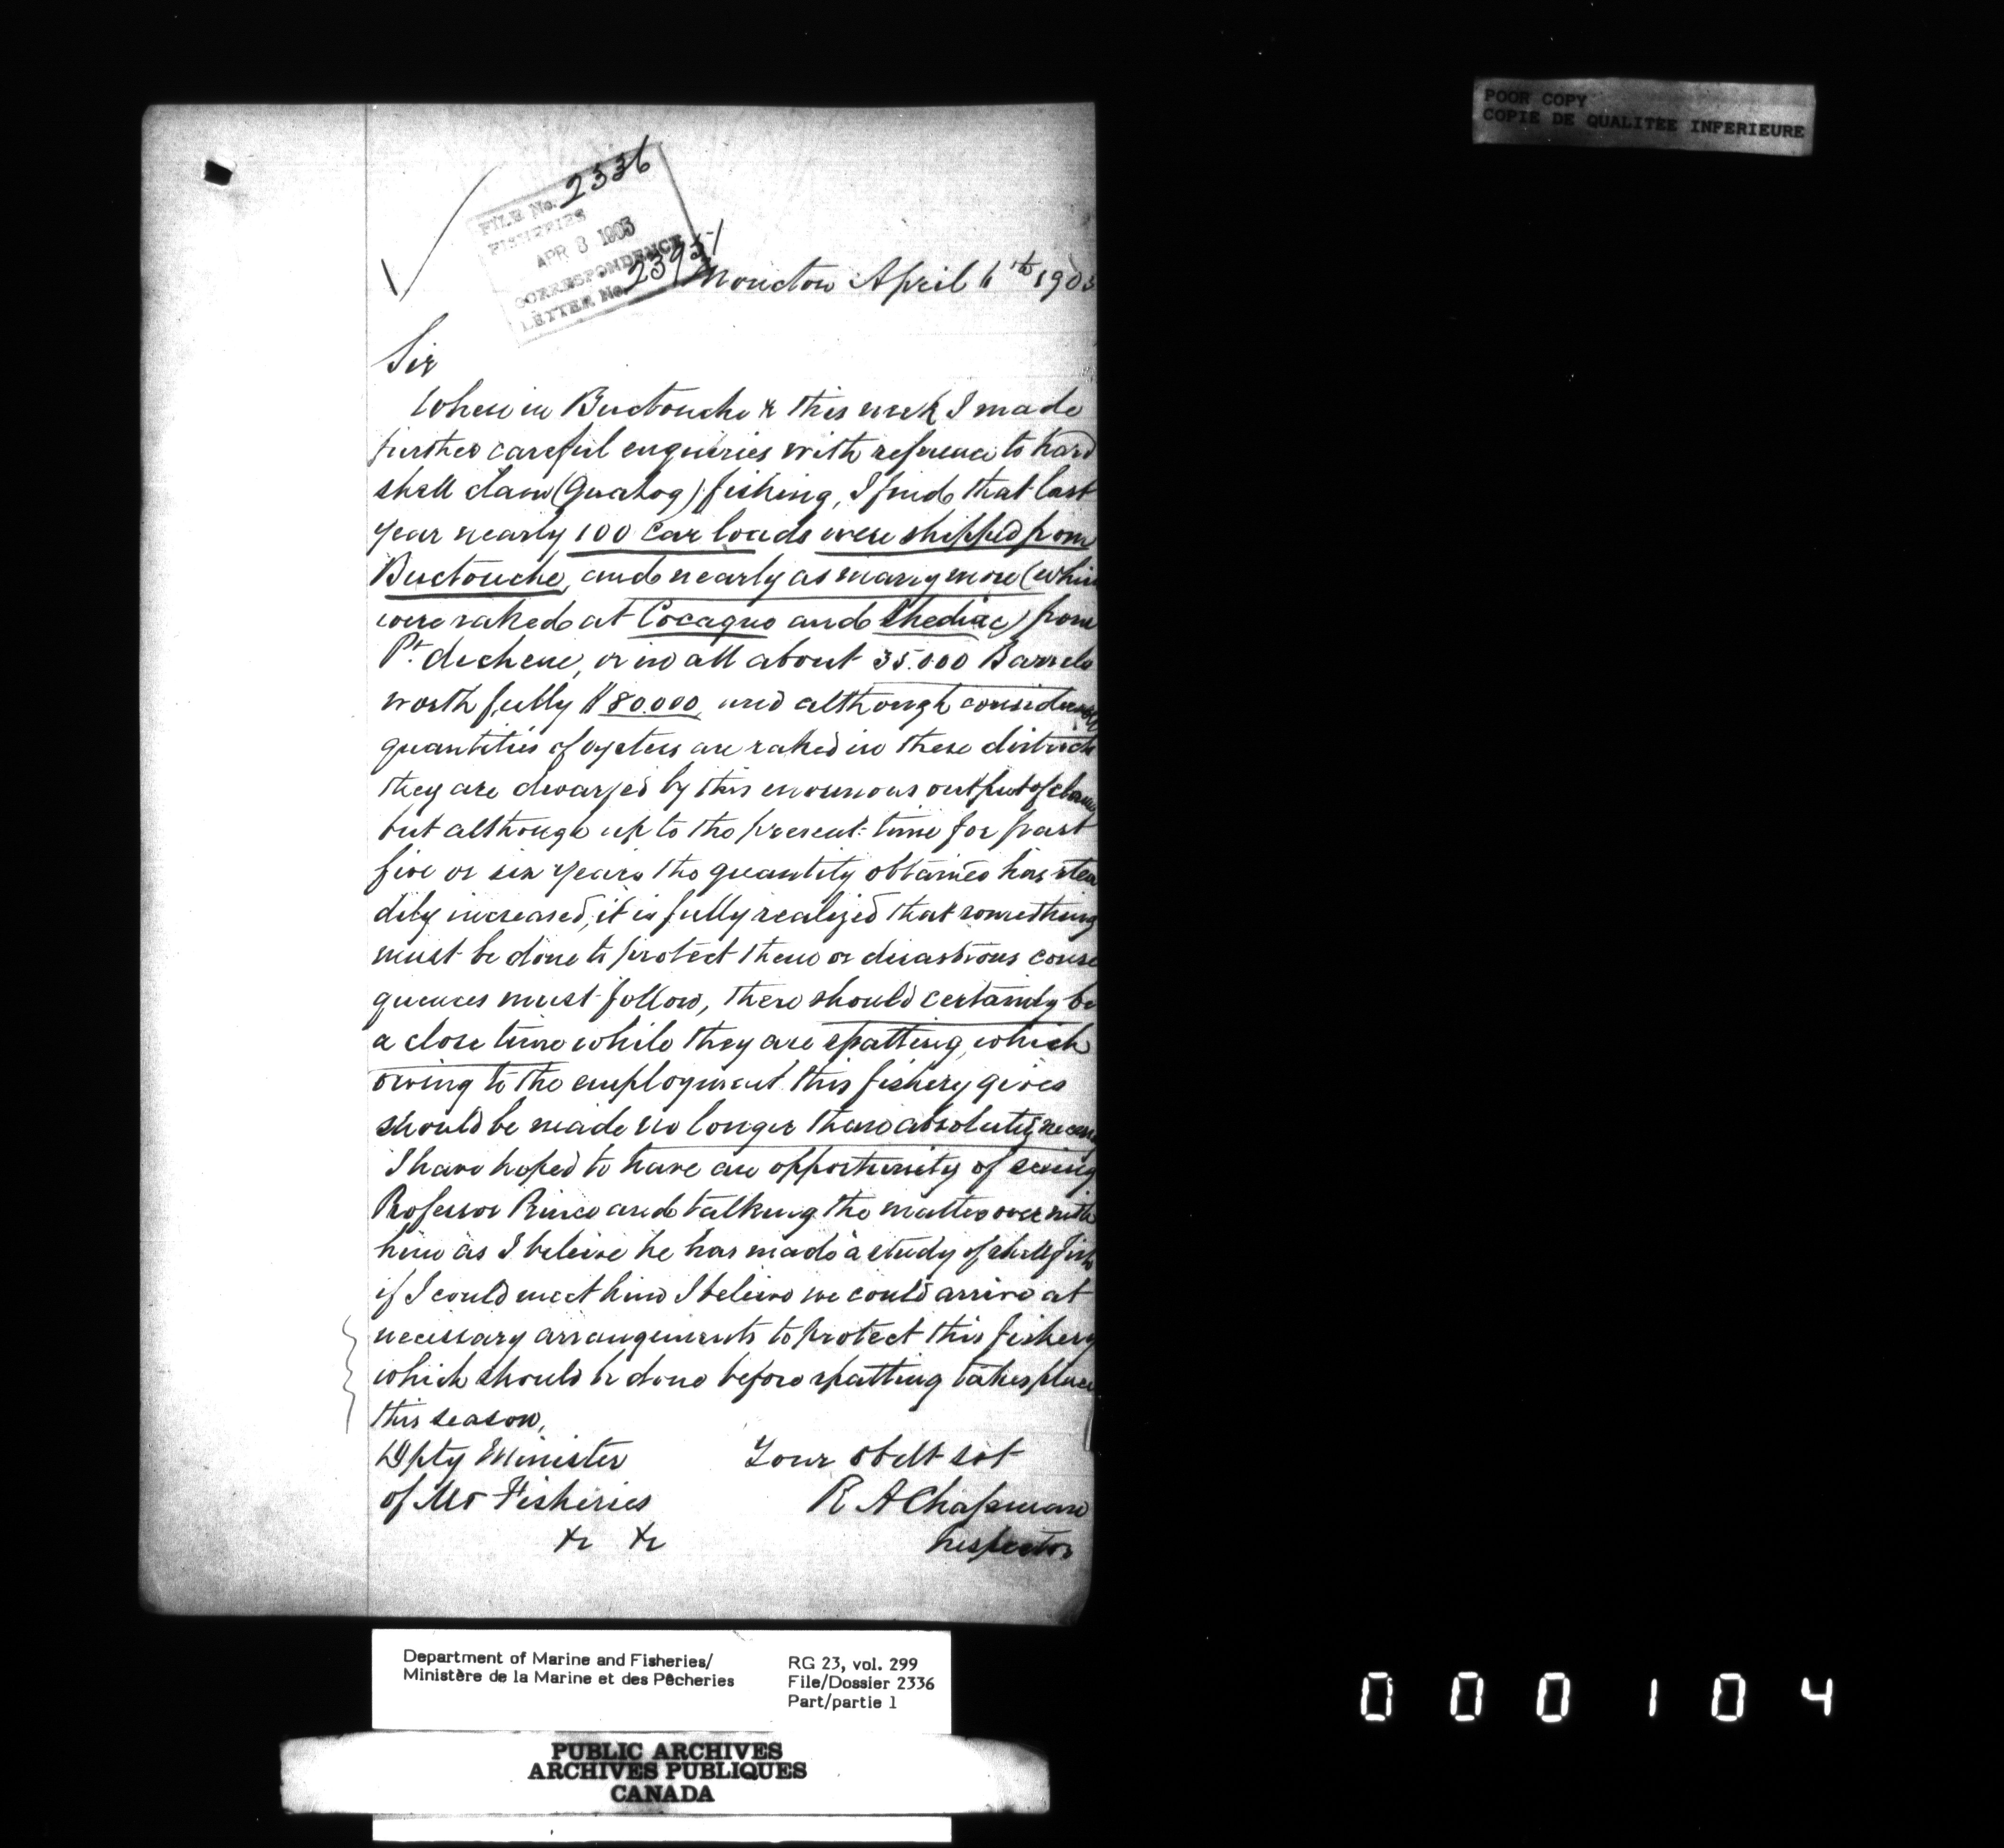 POOR COPY
COPIE DE QUALITEE INFERIEURE
FILE No. 2336
FISHERIES
APR 8 1903
CORRESPONDENCE
LETTER No. 23951
Moncton April 6th 1903
Sir
When in Buctouche & this week I made
further careful enquiries with reference to hard
shell clam (Quahog) fishing, I find that last
year nearly 100 car loads were shipped from
Buctouche, and nearly as many more (which
were raked at Cocagne and Shediac) from
Pt. du chene, or in all about 35.000 Barrels
worth fully $80.000, and although considerable
quantities of oysters are raked in these districts
they are dwarfed by this enormous output of clams
but although up to the present time for past
five or six years the quantity obtained has stea
dily increased, it is fully realized that something
must be done to protect them or disastrous conse
quences must follow, there should certainly be
a close time while they are spatting, which
owing to the employment this fishery gives
should be made no longer than absolutely necessary
I have hoped to have an opportunity of seeing
Professor Prince and talking the matter over with
him as I believe he has made a study of shell fish
if I could meet him I believe we could arrive at
necessary arrangements to protect this fishery
which should be done before spatting takes place
this season,
Dpty Minister Your obdt svt
of Fisheries R A Chapman
&c &c Inspector
Department of Marine and Fisheries/
Ministère de la Marine et des Pêcheries
RG 23, vol. 299
File/Dossier 2336
Part/partie 1
PUBLIC ARCHIVES
ARCHIVES PUBLIQUES
CANADA
000104